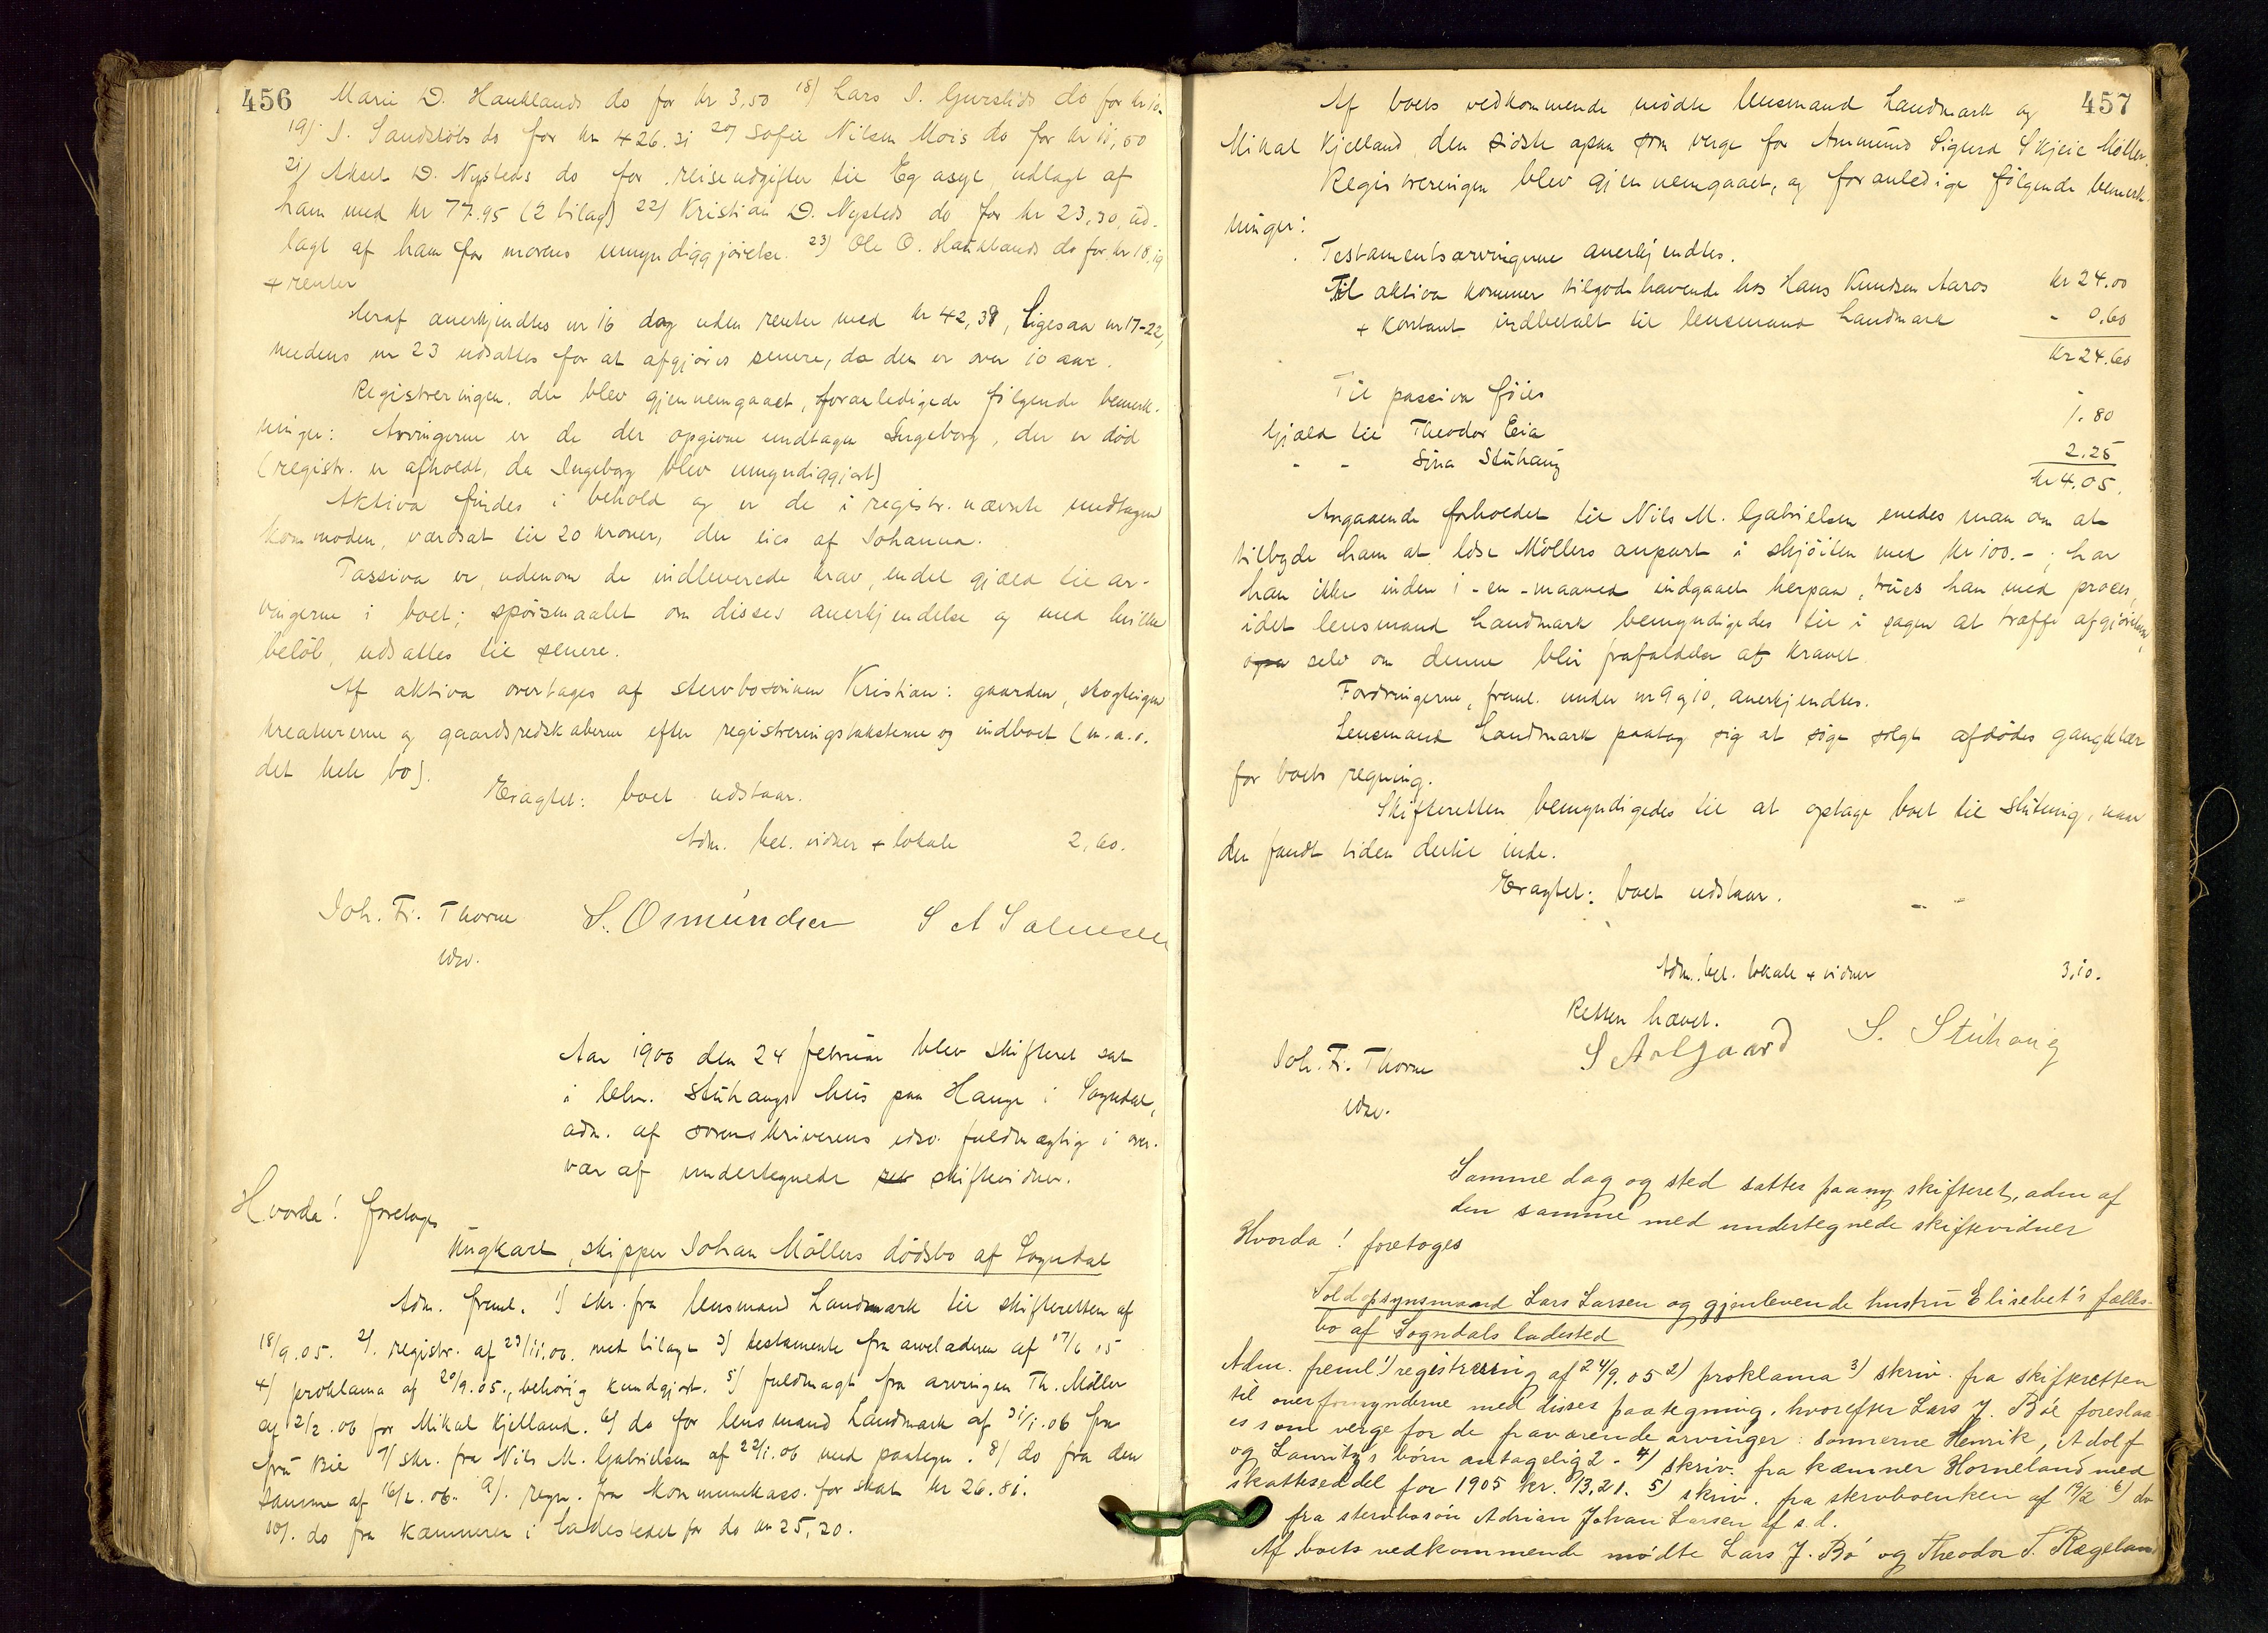 456
Marie D. Hauklands do for kr 3,50 18) Lars I. Gurslids do for kr 10.
19) I. Sandstøls do for kr 426.31 20) Sofie Nilsen Mois do for kr 11,50
21) Aksel D. Nysteds do for reiseudgifter til Eg asyl, udlagt af
ham med kr 77.95 (2 bilag) 22) Kristian D. Nysteds do for kr 23,30, ud-
lagt af ham for morens umyndiggjørelse. 23) Ole O. Hauklands do for kr 18,19
+ renter
Heraf anerkjendtes nr 16 dog uden renter med kr 42,38, ligesaa nr 17-22,
medens nr 23 udsattes for at afgjøres senere, da den er over 10 aar.
Registreringen, der blev gjennemgaaet, foranledigede følgende bemærk-
ninger: Arvingerne er de der opgivne undtagen Ingeborg, der er død
(registr. er afholdt, da Ingeborg blev umyndiggjort)
Aktiva findes i behold og er de i registr. nævnte undtagen
kommoden, værdsat til 20 kroner, der eies af Johanna.
Passiva er, udenom de indleverede krav, endel gjæld til ar-
vingerne i boet; spørsmaalet om disses anerkjendelse og med hvilke
beløb, udsattes til senere.
Af aktiva overtages af stervbosønnen Kristian: gaarden, skogteigen
kreaturerne og gaardsredskaberne efter registreringstaksterne og indboet (m.a.o.
det hele bo).
Eragtet: boet udstaar.
Adm. bet. vidner + lokale 2,60.
Joh. Fr. Thorne S. Osmundsen S A Salmesen
edsv.
Aar 1906 den 24 februar blev skifteret sat
i lehn. Stuhaugs hus paa Hauge i Sogndal,
adm. af sorenskriverens edsv. fuldmægtig i over-
vær af undertegnede skiftevidner.
Hvorda! foretoges
Ungkarl, skipper Johan Møllers dødsbo af Sogndal
Adm. freml. 1) skr. fra lensmand Landmark til skifteretten af
18/9.05. 2). registr. af 23/11.05. med bilage 3) testamente fra arveladeren af 17/6 05
4) proklama af 20/9.05., behørig kundgjort. 5) fuldmagt fra arvingen Th. Møller
af 2/2.06 for Mikal Kjelland. 6) do for lensmand Landmark af 31/1.06 fra
fru Bie 7) skr. fra Nils M. Gabrielsen af 22/1.06 med paategn. 8) do fra den
samme af 16/2.06. 9). regn. fra kommunekass. for skat kr 26.81.
10). do fra kæmneren i ladestedet for do kr 25,20.
457
Af boets vedkommende mødte lensmand Landmark og
Mikal Kjelland, den sidste ogsaa som verge for Ammund Sigurd Skjeie Møller.
Registreringen blev gjennemgaaet, og foranledige følgende bemærk-
ninger:
Testamentsarvingerne anerkjendtes.
Til aktiva kommer tilgodehavende hos Hans Knudsen Aaros kr 24.00
+ kontant indbetalt til lensmand Landmark - 0.60
kr 24.60
Til passiva føies
Gjæld til Theodor Eia 1.80
- - Sina Stuhaug 2.25
kr 4.05.
Angaaende forholdet til Nils M. Gabrielsen enedes man om at
tilbyde ham at løse Møllers anpart i skjøiten med kr 100.-; har
han ikke inden 1 - en - maaned indgaaet herpaa, trues han med proces,
idet lensmand Landmark bemyndigedes til i sagen at træffe afgjørelse,
ogsaa selv om denne blir frafaldelse af kravet
Fordringerne, freml. under nr 9 og 10, anerkjendtes.
Lensmand Landmark paatog sig at søge solgt afdødes gangklær
for boets regning.
Skifteretten bemyndigedes til at optage boet til slutning, naar
den fandt tiden dertil inde.
Eragtet: boet udstaar.
Adm. bet. lokale + vidner 3,10.
Retten hævet.
Joh. Fr. Thorne S Aalgaard S. Stuhaug
edsv.
Samme dag og sted sattes paany skifteret, adm af
den samme med undertegnede skiftevidner
Hvorda! foretoges
Toldopsynsmand Lars Larsen og gjenlevende hustru Elisebet's fælles-
bo af Sogndals ladested
Adm. freml 1) registrering af 24/9.05 2) proklama 3) skriv. fra skifteretten
til overformynderne med disses paategning, hvorefter Lars J. Bøe foreslaa-
es som verge for de fraværende arvinger: sønnerne Henrik, Adolf
og Lauritz's børn antagelig 2. 4) skriv. fra kæmner Horneland med
skatteseddel for 1905 kr. 13,21. 5) skriv. fra stervboenken af 19/2 6) do
fra stervbosøn Adrian Johan Larsen af s.d.
Af boets vedkommende mødte Lars J. Bø og Theodor T. Rægeland